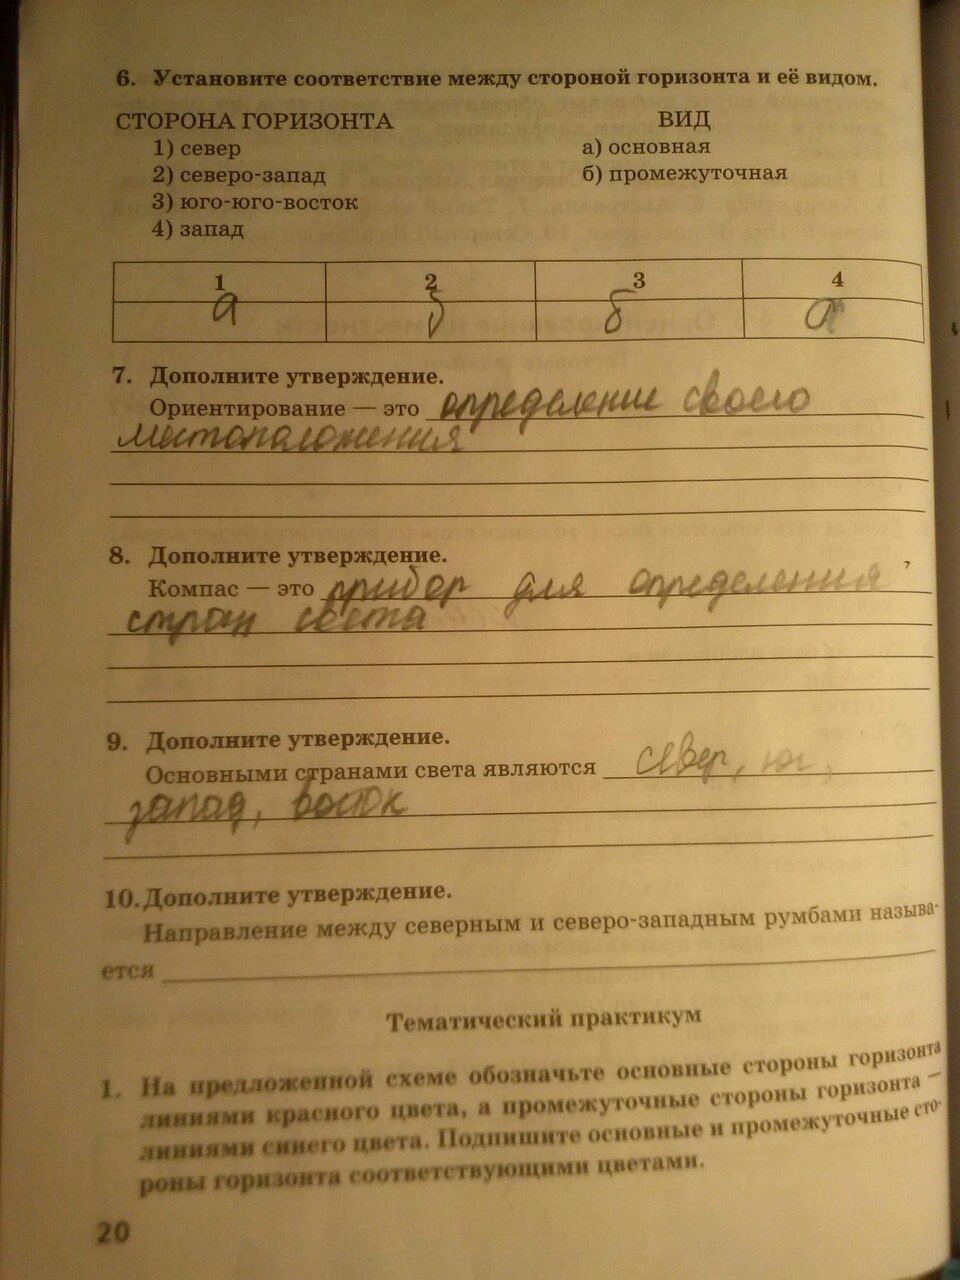 6. Установите соответствие между стороной горизонта и её видом.
СТОРОНА ГОРИЗОНТА ВИД
1) север а) основная
2) северо-запад б) промежуточная
3) юго-юго-восток
4) запад
1 2 3 4
а б б а
7. Дополните утверждение.
Ориентирование — это определение своего
местоположения
8. Дополните утверждение.
Компас — это прибор для определения
стран света
9. Дополните утверждение.
Основными странами света являются север, юг,
запад, восток
10. Дополните утверждение.
Направление между северным и северо-западным румбами называ-
ется
Тематический практикум
1. На предложенной схеме обозначьте основные стороны горизонта
линиями красного цвета, а промежуточные стороны горизонта —
линиями синего цвета. Подпишите основные и промежуточные сто-
роны горизонта соответствующими цветами.
20